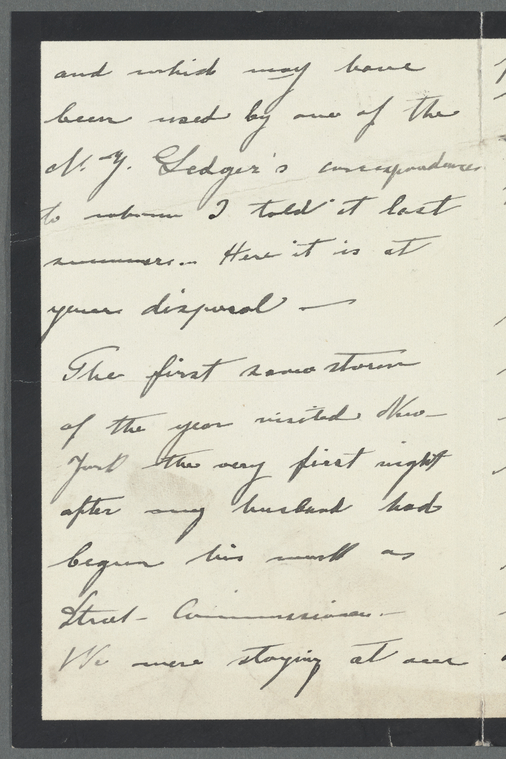 and which may have
been used by one of the
N.Y. Ledger's correspondences
to whom I told it last
summer. Here it is at
your disposal —
The first snow storm
of the year visited New-
York the very first night
after my husband had
begun his work as
Street- Commissioner.
We were staying at our